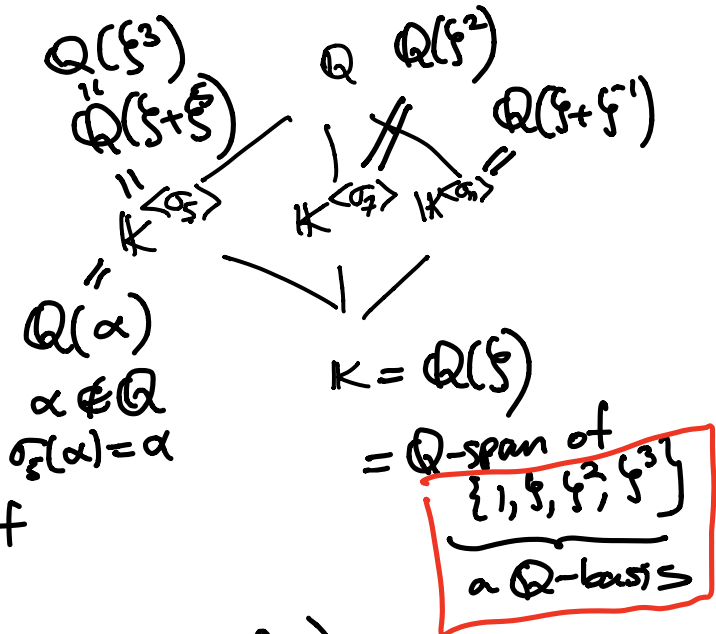 ℚ(ζ³)
ℚ
ℚ(ζ²)
=
ℚ(ζ+ζ⁵)
=
ℚ(ζ+ζ⁻¹)
=
K^<σ₅>
K^<σ₇>
K^<σ₁₁>
=
ℚ(α)
α ∉ ℚ
σ₅(α) = α
K = ℚ(ζ)
= ℚ-span of
{1, ζ, ζ², ζ³}
a ℚ-basis
f